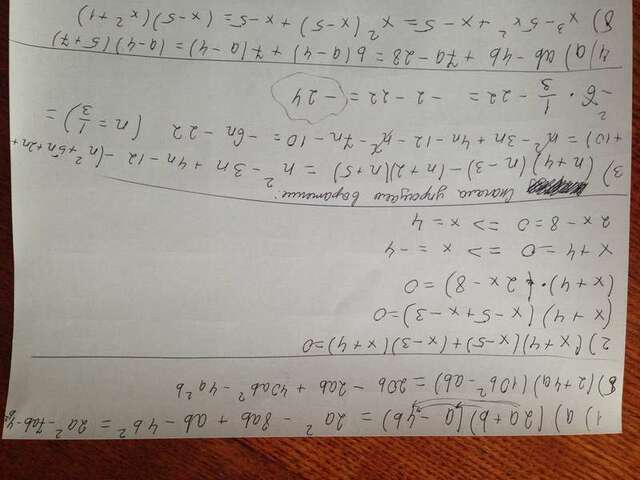 1) a) (2a+b)(a-4b) = 2a² - 8ab + ab - 4b² = 2a² - 7ab - 4b²
б) (2+4a)(10b²-ab) = 20b - 2ab + 40ab² - 4a²b
2) (x+4)(x-5)+(x-3)(x+4)=0
(x+4)(x-5+x-3)=0
(x+4)·(2x-8)=0
x+4=0 => x=-4
2x-8=0 => x=4
Сначала упрощаем
3) (n+4)(n-3)-(n+2)(n+5) = n²-3n+4n-12-(n²+5n+2n+
+10) = n²-3n+4n-12-n²-7n-10 = -6n-22 (n=1/3) =
-6·1/3-22= -2-22=-24
4) a) ab-4b+7a-28=b(a-4)+7(a-4)=(a-4)(5+7)
б) x³-5x²+x-5=x²(x-5)+x-5=(x-5)(x²+1)